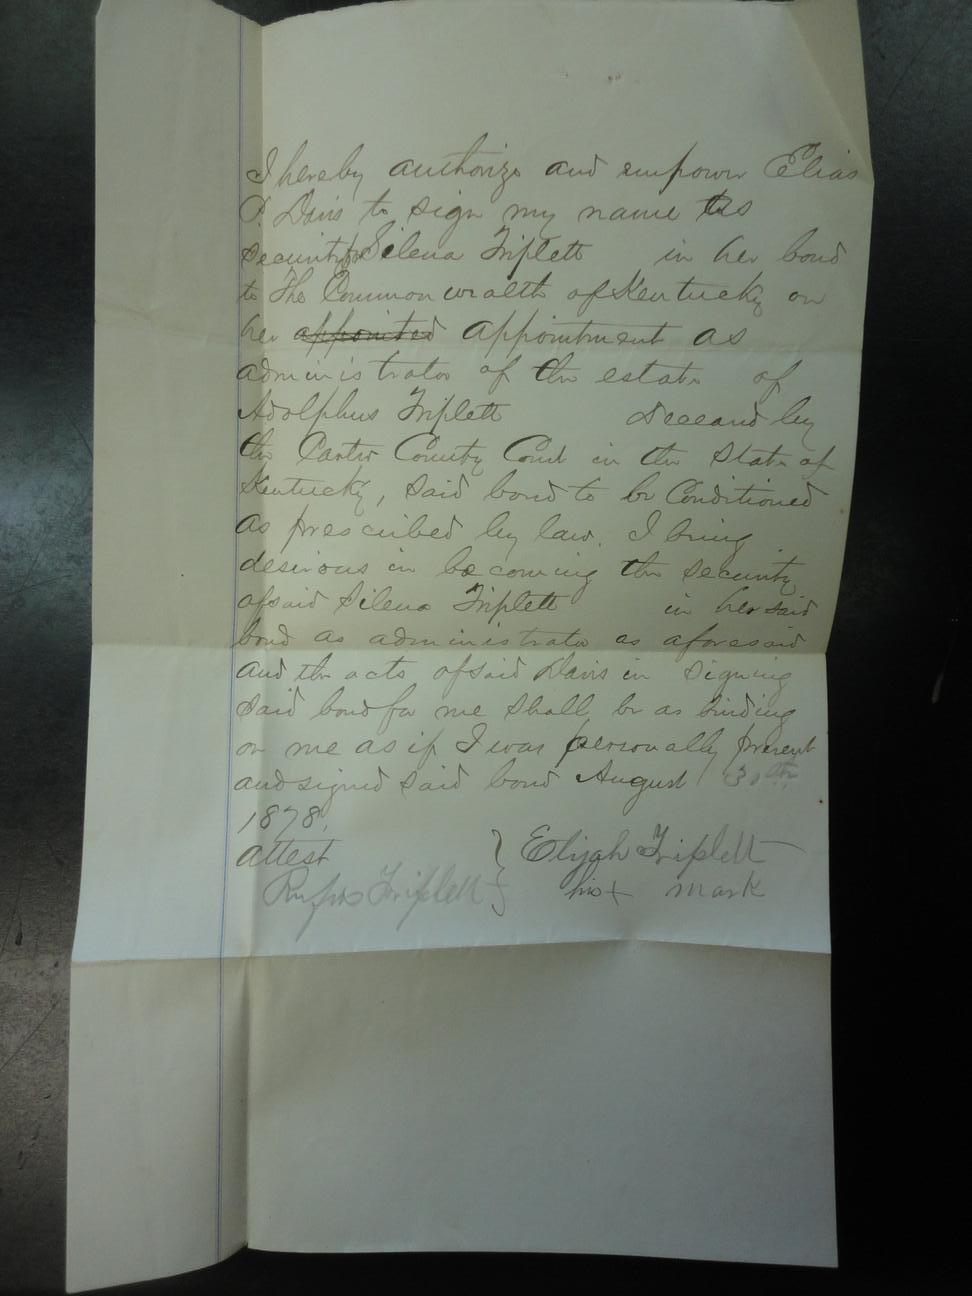 I hereby authorize and empower Elias
P. Davis to sign my name as
Security for Silena Triplett in her bond
to The Commonwealth of Kentucky on
her appointed appointment as
administrator of the estate of
Adolphus Triplett deceased by
the Carter County Court in the State of
Kentucky, said bond to be Conditioned
as prescribed by law. I being
desirous in becoming the security
of said Silena Triplett in her said
bond as administrator as aforesaid
and the acts of said Davis in signing
said bond for me shall be as binding
on me as if I was personally present
and signed said bond August 30th
1878.
attest } Elijah Triplett
Rufus Triplett } his + mark